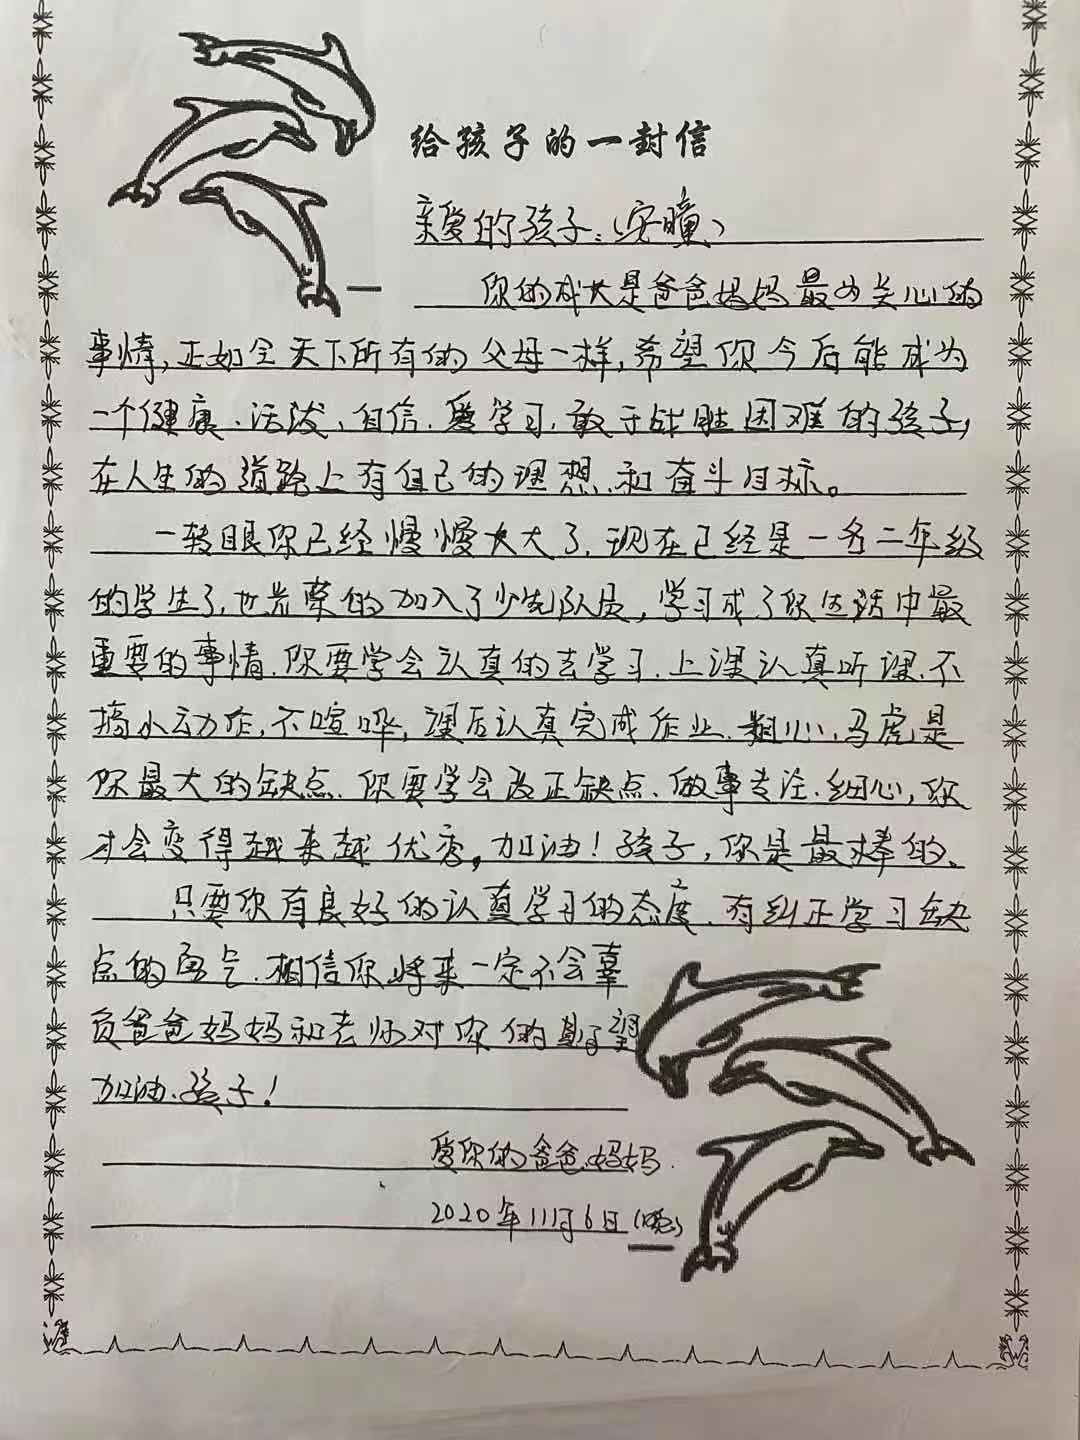 给孩子的一封信
亲爱的孩子:(安曈)
你的成长是爸爸妈妈最为关心的
事情,正如全天下所有的父母一样,希望你今后能成为
一个健康、活泼、自信、爱学习、敢于战胜困难的孩子,
在人生的道路上有自己的理想和奋斗目标。
一转眼你已经慢慢长大了,现在已经是一名二年级
的学生了,也光荣的加入了少先队员,学习成了你生活中最
重要的事情,你要学会认真的去学习,上课认真听课,不
搞小动作,不喧哗,课后认真完成作业,粗心,马虎是
你最大的缺点,你要学会改正缺点,做事专注、细心,你
才会变得越来越优秀,加油!孩子,你是最棒的。
只要你有良好的认真学习的态度,有纠正学习缺
点的勇气,相信你将来一定不会辜
负爸爸妈妈和老师对你的期望
加油、孩子!
爱你的爸爸、妈妈.
2020年11月6日(晚)